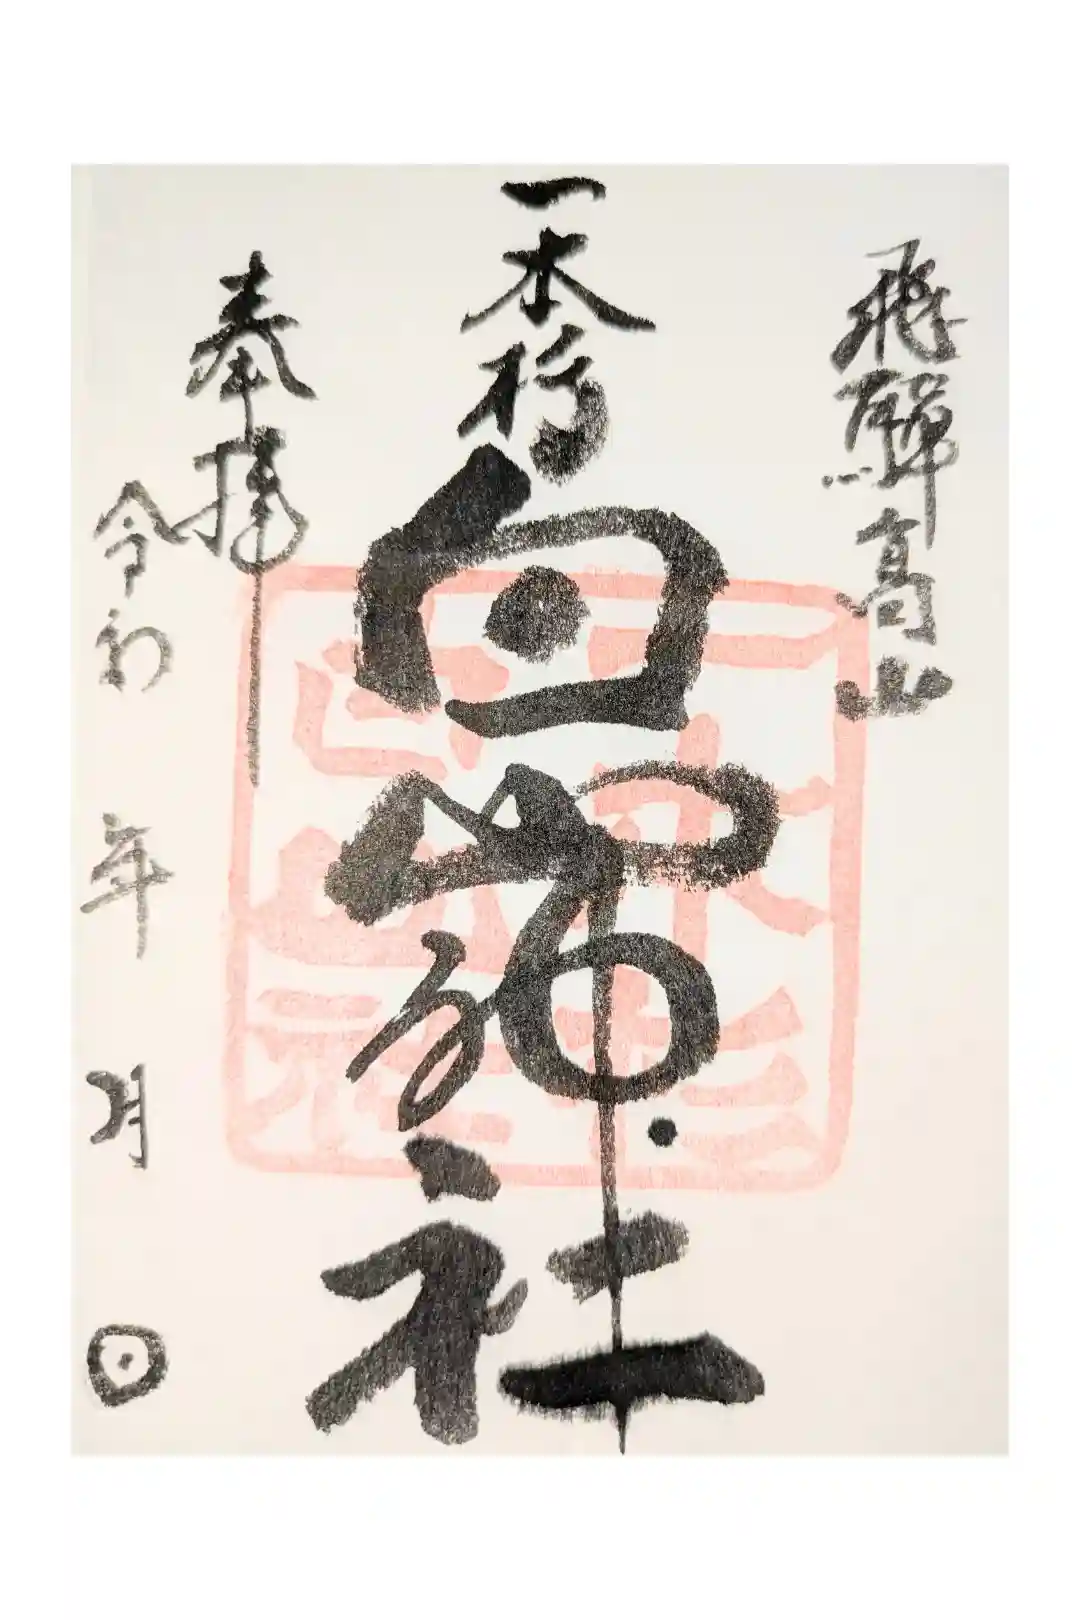 飛騨高山
一本杉
白山神社
奉拝
令和 年 月 日